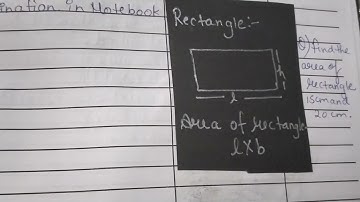 ination in Notebook
Rectangle:-
h
l
Area of rectangle
l×b
Q) find the
area of
rectangle
15cm and
20 cm.